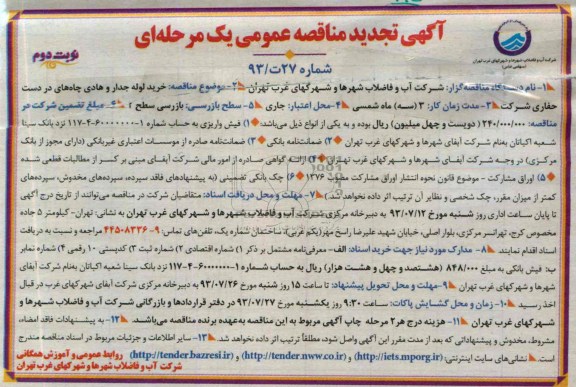 آگهی تجدید مناقصه عمومی یک مرحله‌ای
شماره ۲۷ت/۹۳
نوبت دوم
شرکت آب و فاضلاب شهرها و شهرکهای غرب تهران
(سهامی خاص)
۱- نام دستگاه مناقصه‌گزار: شرکت آب و فاضلاب شهرها و شهرکهای غرب تهران ۲- موضوع مناقصه: خرید لوله جدار و هادی چاه‌های در دست
حفاری شرکت ۳- مدت زمان کار: ۳ (سه) ماه شمسی ۴- محل اعتبار: جاری ۵- سطح بازرسی: بازرسی سطح ۶- مبلغ تضمین شرکت در
مناقصه: ۲۴۰/۰۰۰/۰۰۰ (دویست و چهل میلیون) ریال بوده و به یکی از انواع ذیل می‌باشد: ۱) فیش واریزی به حساب شماره ۱-۶۰۰۰۰۰۰۰-۴-۱۱۷ نزد بانک سینا
شعبه اکباتان به‌نام شرکت آبفای شهرها و شهرکهای غرب تهران ۲) ضمانتنامه بانکی ۳) ضمانتنامه صادره از موسسات اعتباری غیربانکی (دارای مجوز از بانک
مرکزی) در وجه شرکت آبفای شهرها و شهرکهای غرب تهران ۴) ارائه گواهی صادره از امور مالی شرکت آبفای مبنی بر کسر از مطالبات قطعی شده
۵) اوراق مشارکت - موضوع قانون نحوه انتشار اوراق مشارکت مصوب ۱۳۷۶ ۶) چک بانکی تضمینی (به پیشنهادهای فاقد سپرده، سپرده‌های مخدوش، سپرده‌های
کمتر از میزان مقرر، چک شخصی و نظایر آن ترتیب اثر داده نخواهد شد.) ۷- مهلت و محل دریافت اسناد: متقاضیان شرکت در مناقصه می‌توانند از تاریخ درج آگهی
تا پایان ساعت اداری روز شنبه مورخ ۹۳/۰۷/۱۲ به دبیرخانه مرکزی شرکت آب و فاضلاب شهرها و شهرکهای غرب تهران به نشانی: تهران- کیلومتر ۵ جاده
مخصوص کرج، تهرانسر مرکزی، بلوار اصلی، خیابان شهید علیرضا راسخ مهر (یکم غربی)، ساختمان شماره یک، تلفن‌های تماس: ۹-۴۴۵۰۸۳۳۶ مراجعه و نسبت به دریافت
اسناد اقدام نمایند. ۸- مدارک مورد نیاز جهت خرید اسناد: الف- معرفی‌نامه مشتمل بر ذکر ۱) شماره اقتصادی ۲) شماره ثبت ۳) کدپستی ۱۰ رقمی ۴) شماره نمابر
ب: فیش بانکی به مبلغ ۸۴۸/۰۰۰ (هشتصد و چهل و هشت هزار) ریال به حساب شماره ۱-۶۰۰۰۰۰۰۰-۴-۱۱۷ نزد بانک سینا شعبه اکباتان به‌نام شرکت آبفای
شهرها و شهرکهای غرب تهران ۹- مهلت و محل تحویل پیشنهاد: تا ساعت ۱۵ روز شنبه مورخ ۹۳/۰۷/۲۶ به دبیرخانه مرکزی شرکت آبفای شهرها و شهرکهای غرب در قبال
اخذ رسید ۱۰- زمان و محل گشایش پاکات: ساعت ۹:۳۰ روز یکشنبه مورخ ۹۳/۰۷/۲۷ در دفتر قراردادها و بازرگانی شرکت آب و فاضلاب شهرها و
شهرکهای غرب تهران ۱۱- هزینه درج هر ۲ مرحله چاپ آگهی مربوط به این مناقصه به‌عهده برنده مناقصه می‌باشد. ۱۲- به پیشنهادات فاقد امضاء،
مشروط، مخدوش و پیشنهاداتی که بعد از مدت مقرر این آگهی واصل شود، مطلقاً ترتیب اثر داده نخواهد شد. ۱۳- سایر اطلاعات و جزئیات مربوط در اسناد مناقصه مندرج
است. نشانی‌های سایت اینترنتی: (http://iets.mporg.ir) و (http://tender.nww.co.ir) و (http://tender.bazresi.ir)
روابط عمومی و آموزش همگانی
شرکت آب و فاضلاب شهرها و شهرکهای غرب تهران